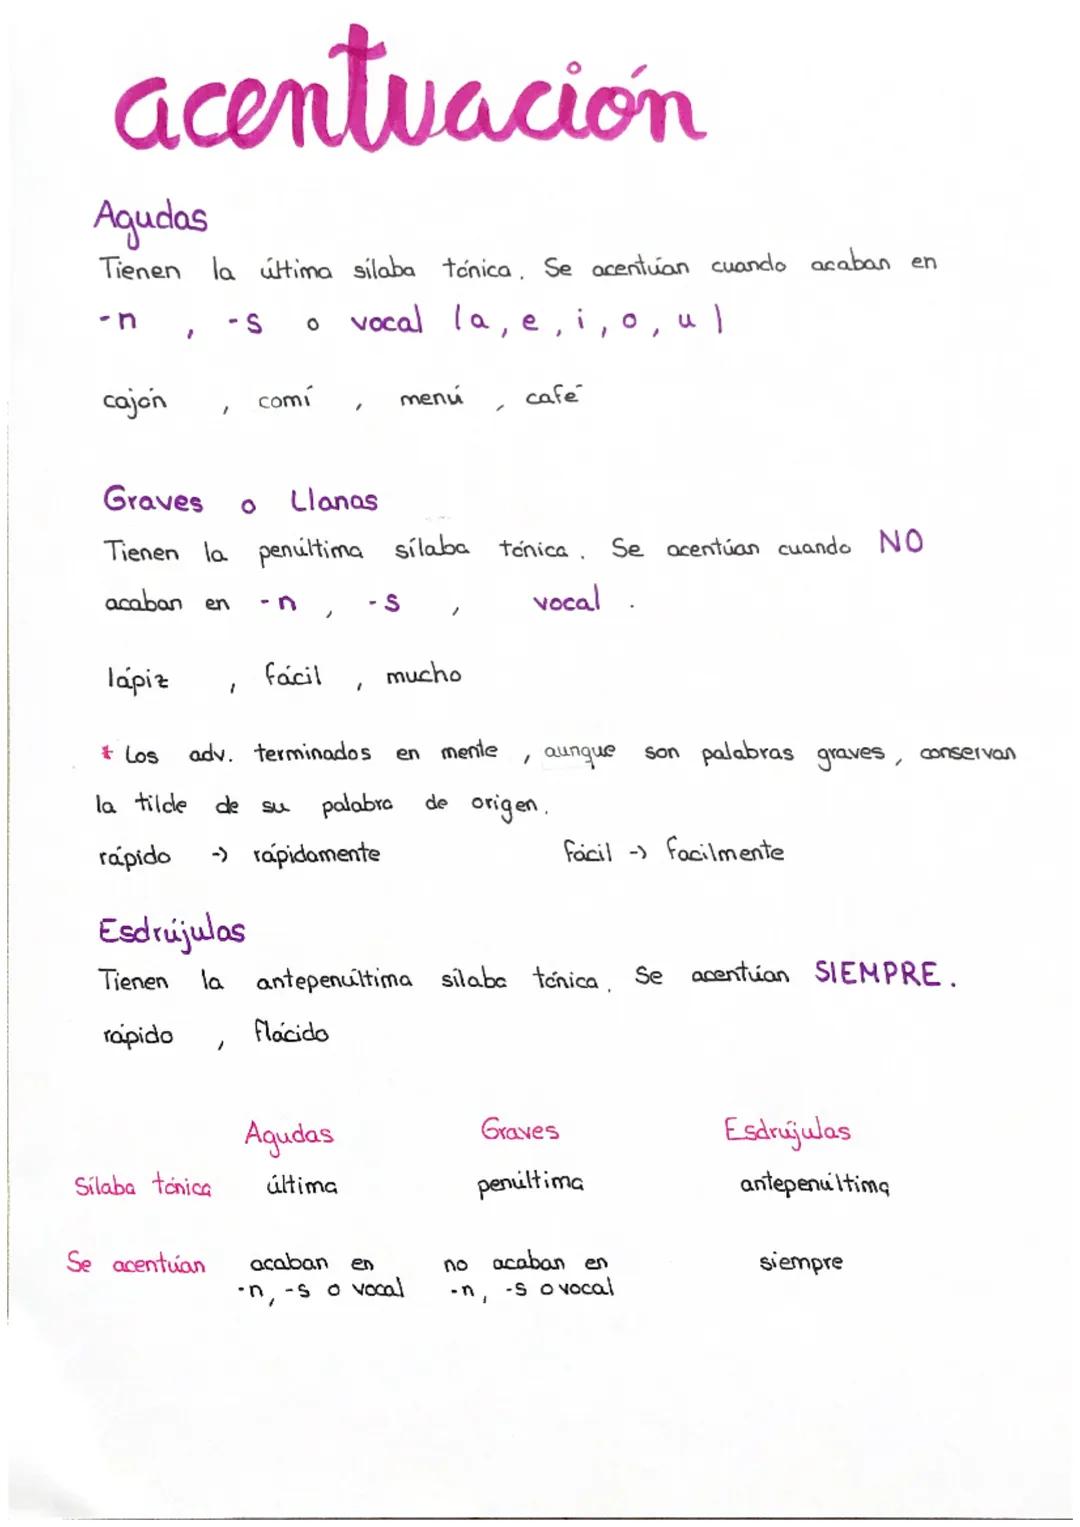 acentuación
Agudas
Tienen la última sílaba tónica. Se acentúan cuando acaban en
-n , -s o vocal (a, e, i, o, u)
cajón , comí , menú , café
Graves o Llanas
Tienen la penúltima sílaba tónica. Se acentúan cuando NO
acaban en -n , -s , vocal .
lápiz , fácil , mucho
* Los adv. terminados en mente , aunque son palabras graves, conservan
la tilde de su palabra de origen.
rápido -> rápidamente fácil -> facilmente
Esdrújulas
Tienen la antepenúltima sílaba tónica. Se acentúan SIEMPRE.
rápido , flácido
Agudas Graves Esdrújulas
Sílaba tónica última penúltima antepenúltima
Se acentúan acaban en no acaban en siempre
-n, -s o vocal -n, -s o vocal